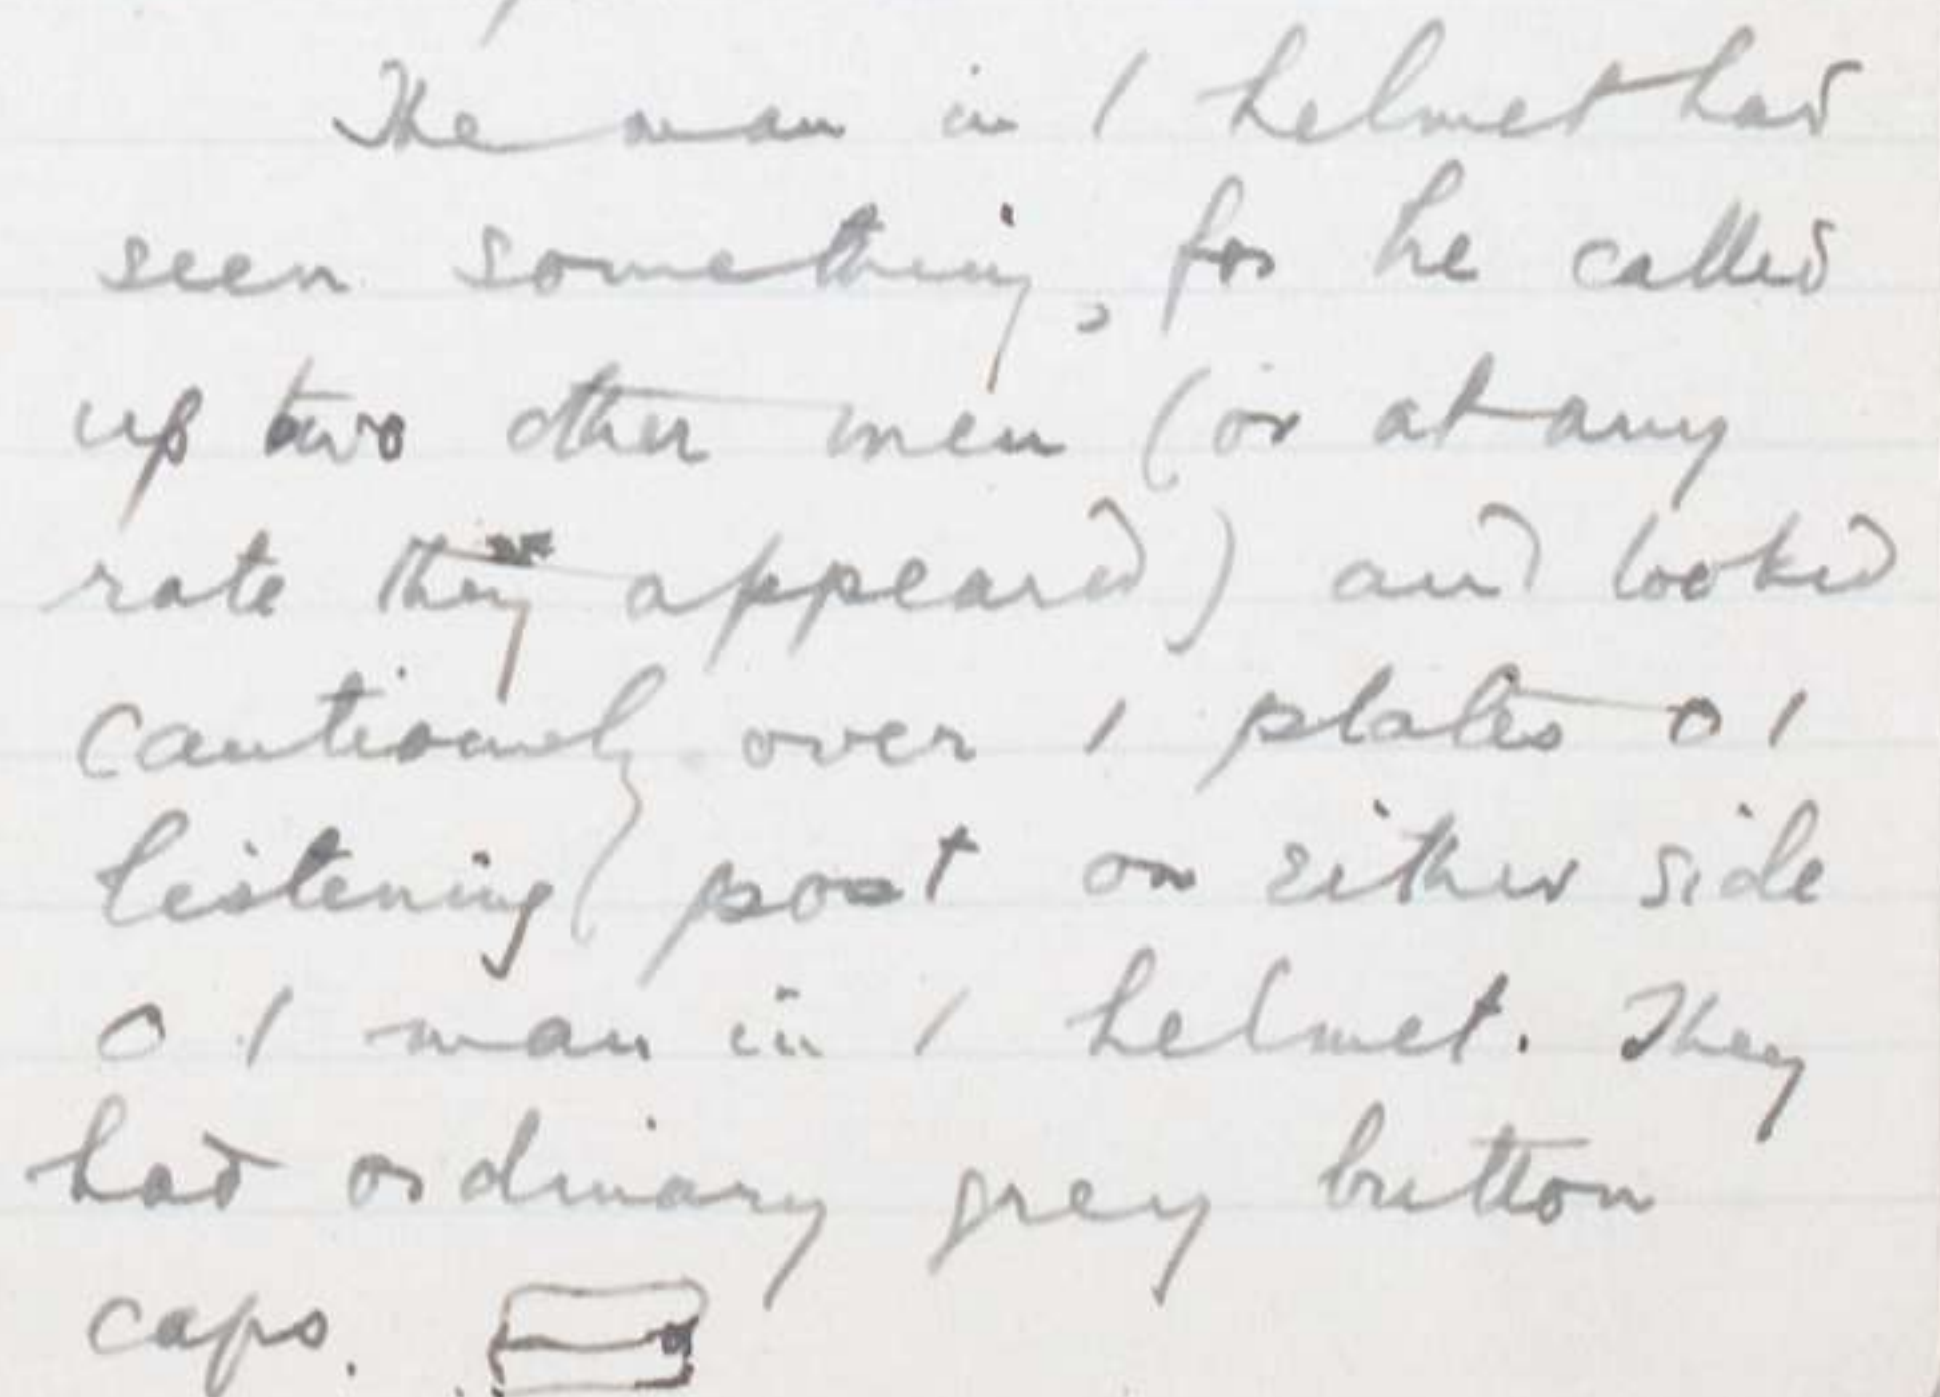 The man in / helmet had
seen something, for he called
up two other men (or at any
rate they appeared) and looked
cautiously over / plates o /
listening post on either side
o / man in / helmet. They
had ordinary grey button
caps.